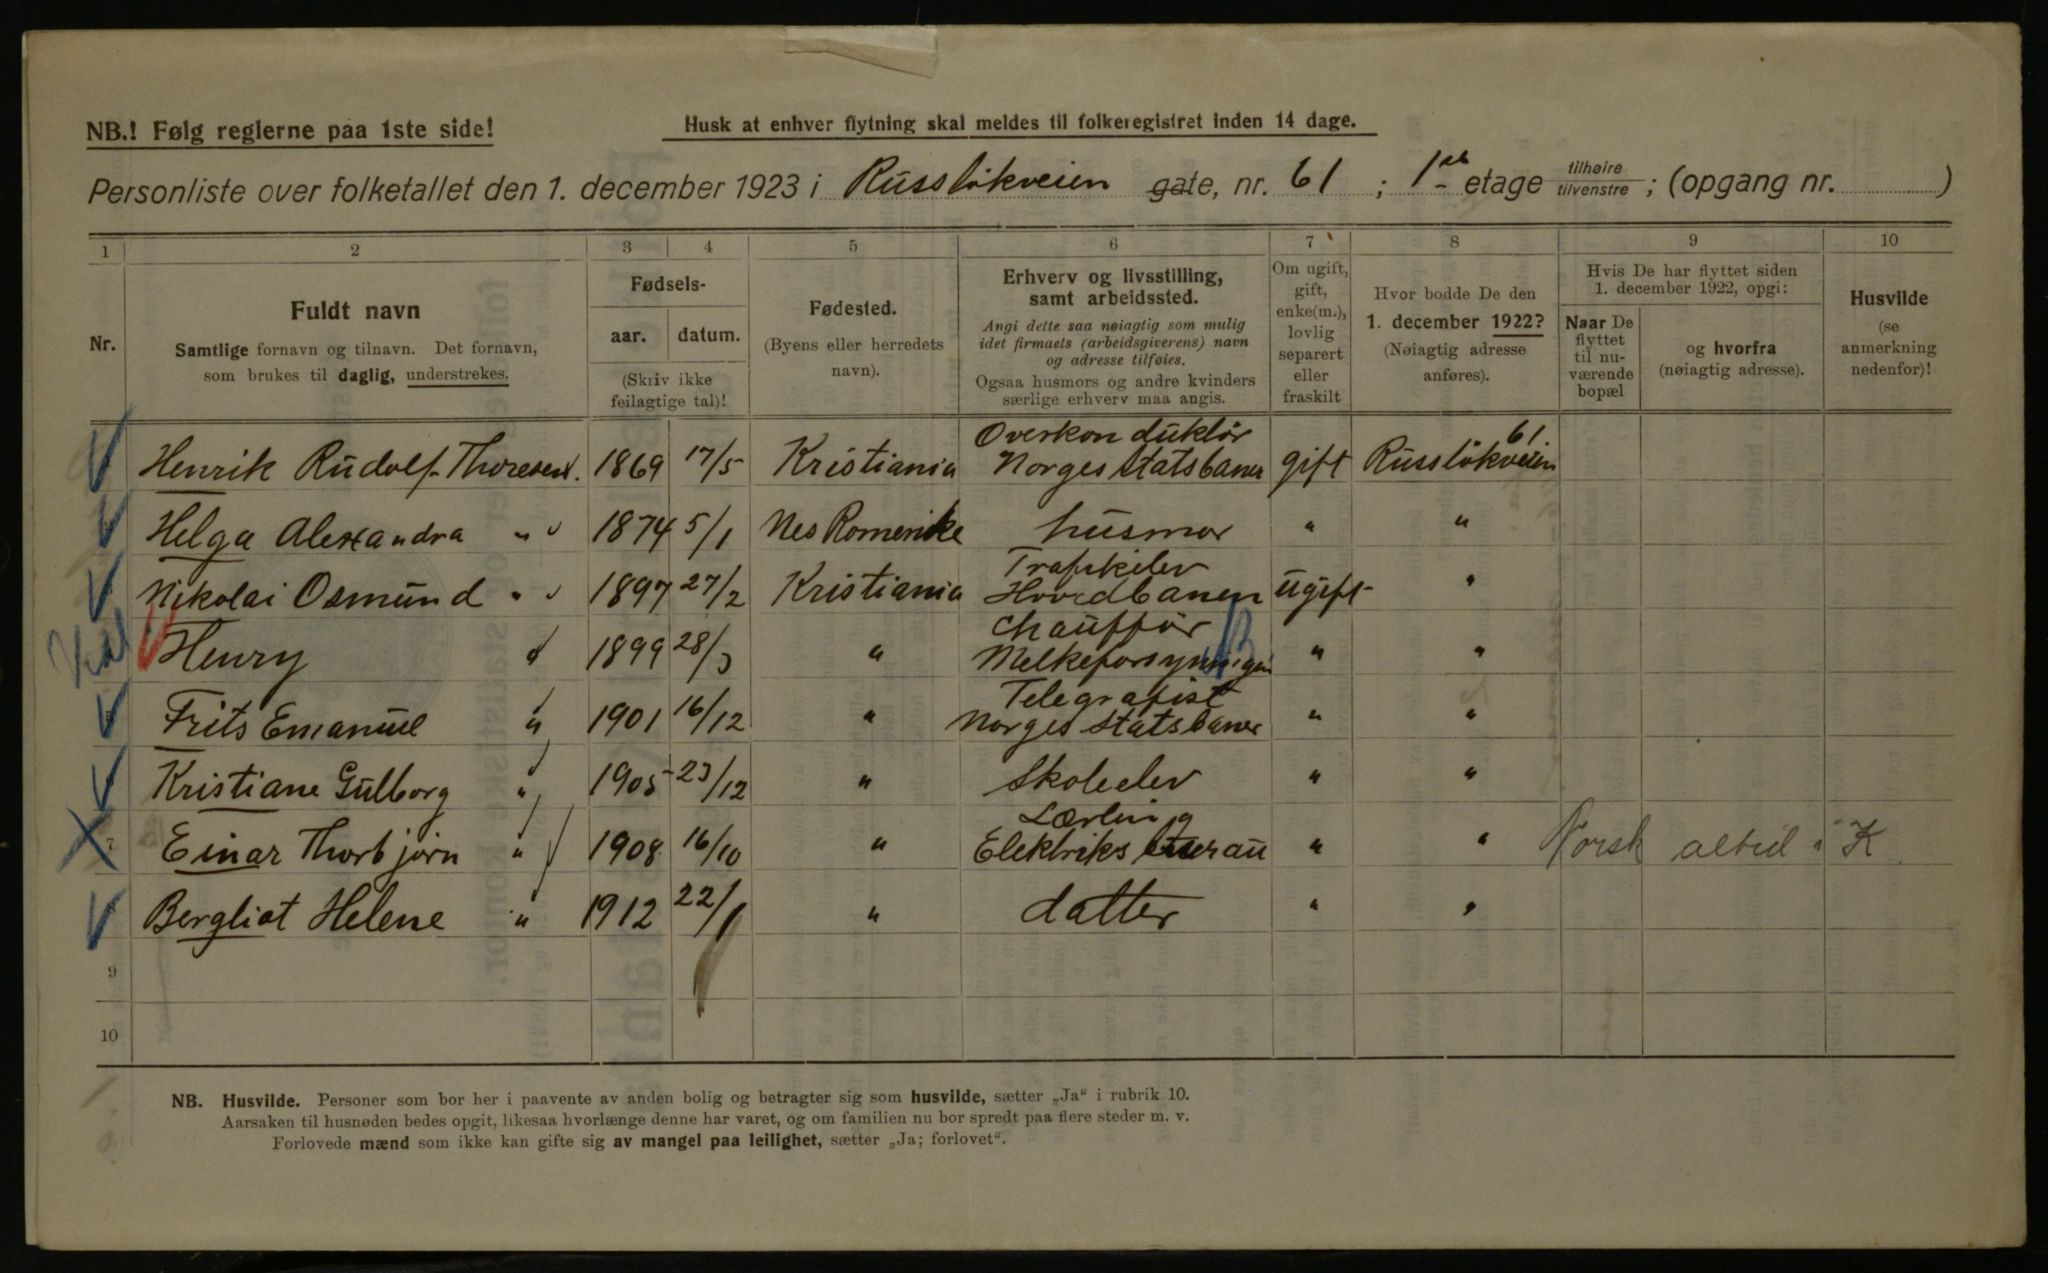 NB.! Følg reglerne paa 1ste side!
Husk at enhver flytning skal meldes til folkeregistret inden 14 dage.
Personliste over folketallet den 1. december 1923 i Russløkveien gate, nr. 61 ; 1ste etage tilhøire tilvenstre ; (opgang nr. )
1 2 3 4 5 6 7 8 9 10
Nr.
Fuldt navn
Samtlige fornavn og tilnavn. Det fornavn,
som brukes til daglig, understrekes.
Fødsels-
aar. datum.
(Skriv ikke
feilagtige tal)!
Fødested.
(Byens eller herredets
navn).
Erhverv og livsstilling,
samt arbeidssted.
Angi dette saa nøiagtig som mulig
idet firmaets (arbeidsgiverens) navn
og adresse tilføies.
Ogsaa husmors og andre kvinders
særlige erhverv maa angis.
Om ugift,
gift,
enke(m.),
lovlig
separert
eller
fraskilt
Hvor bodde De den
1. december 1922?
(Nøiagtig adresse
anføres).
Hvis De har flyttet siden
1. december 1922, opgi:
Naar De
flyttet
til nu-
værende
bopæl
og hvorfra
(nøiagtig adresse).
Husvilde
(se
anmerkning
nedenfor)!
Henrik Rudolf Thoresen. 1869 17/5 Kristiania Overkonduktør Norges Statsbaner gift Russløkveien 61
Helga Alexandra " 1874 5/1 Nes Romerike husmor " "
Nikolai Osmund " 1897 27/2 Kristiania Trafikelev Hovedbanen ugift "
Henry " 1899 28/3 " Chauffør Melkeforsyningen " "
Frits Emanuel " 1901 16/12 " Telegrafist Norges Statsbaner " "
Kristiane Gulborg " 1905 23/12 " Skoleelev " "
7 Einar Thorbjørn " 1908 16/10 " Lærling Elektriks " " Norsk altid i K
Bergliot Helene " 1912 22/1 " datter " "
9
10
NB. Husvilde. Personer som bor her i paavente av anden bolig og betragter sig som husvilde, sætter „Ja“ i rubrik 10.
Aarsaken til husnøden bedes opgit, likesaa hvorlænge denne har varet, og om familien nu bor spredt paa flere steder m. v.
Forlovede mænd som ikke kan gifte sig av mangel paa leilighet, sætter „Ja; forlovet“.